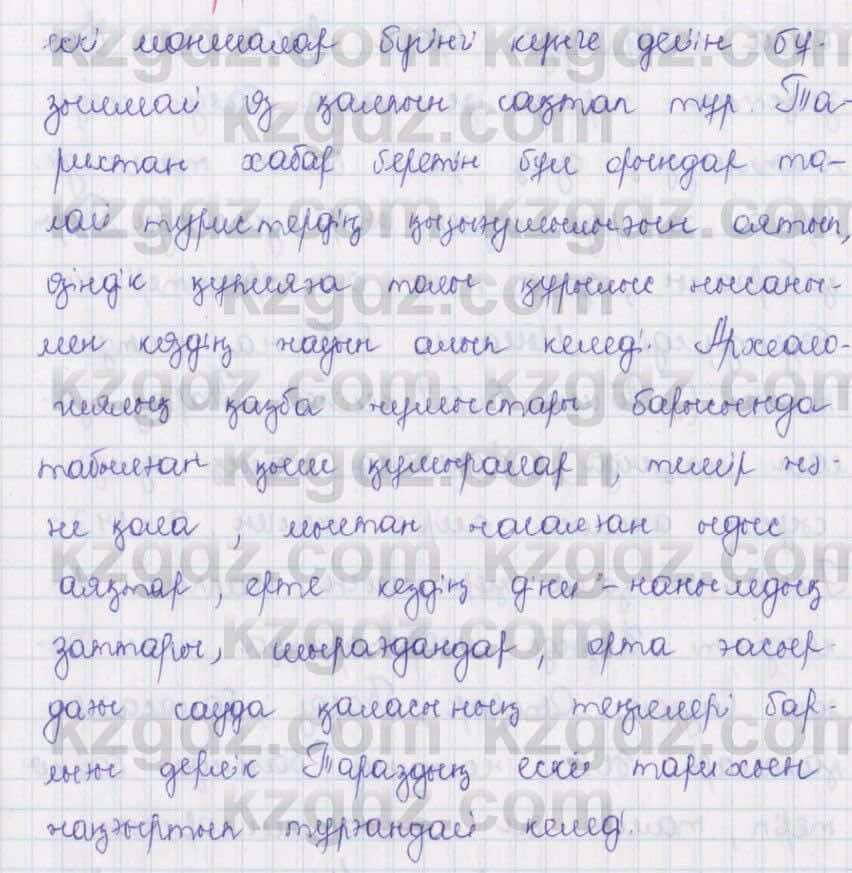 ескі моншалар бүгінгі күнге дейін бұ-
зылмай өз қалпын сақтап тұр. Та-
рихтан хабар беретін бұл орындар та-
лай туристердің қызығушылығын оятып,
өзіндік құпияға толы құрылыс нысаны-
мен көздің жауын алып келеді. Археоло-
гиялық қазба жұмыстары барысында
табылған қыш құмыралар, темір жә-
не қола, мыстан жасалған ыдыс
аяқтар, ерте кездің діни-нанымдық
заттары, шырағдандар, орта ғасыр-
дағы сауда қаласының теңгелері бар-
лығы дерлік Тараздың ескі тарихын
жаңғыртып тұрғандай келеді.
kzgdz.com